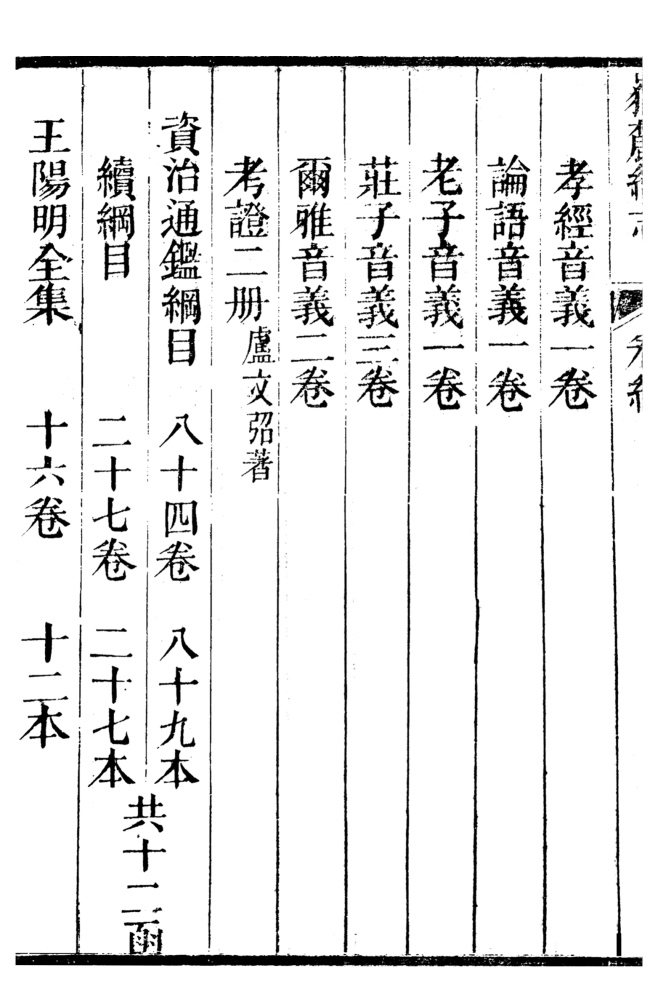 孝經音義一卷
論語音義一卷
老子音義一卷
莊子音義三卷
爾雅音義二卷
考證二册盧文弨著
資治通鑑綱目 八十四卷 八十九本
續綱目 二十七卷 二十七本
共十二函
王陽明全集 十六卷 十二本